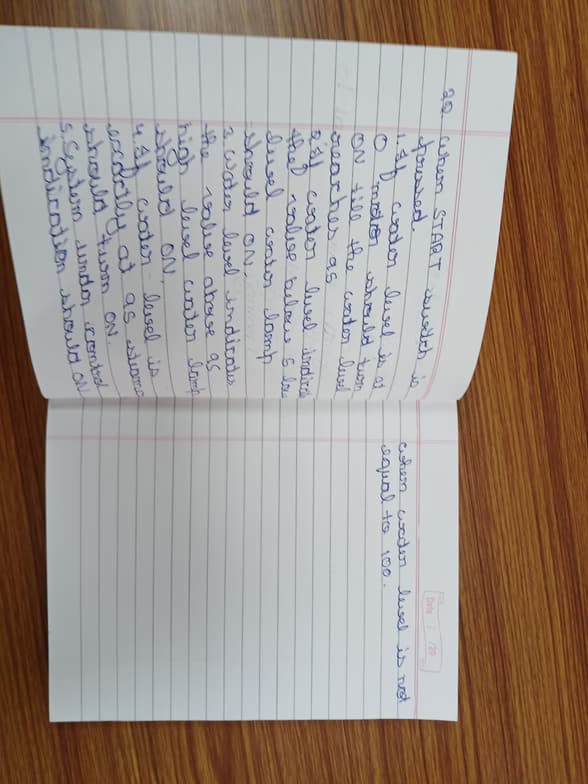 22. When START switch is
pressed.
1. If water level is at
0 motor should turn
ON till the water level
reaches 95
2. If water level indicates
the value below 5 low
level water lamp
should ON.
3. water level indicates
the value above 95
high level water lamp
should ON.
4. If water level is
exactly at 95
should turn ON.
5. System under control
indication should ON
when water level is not
equal to 100.
Date : /20